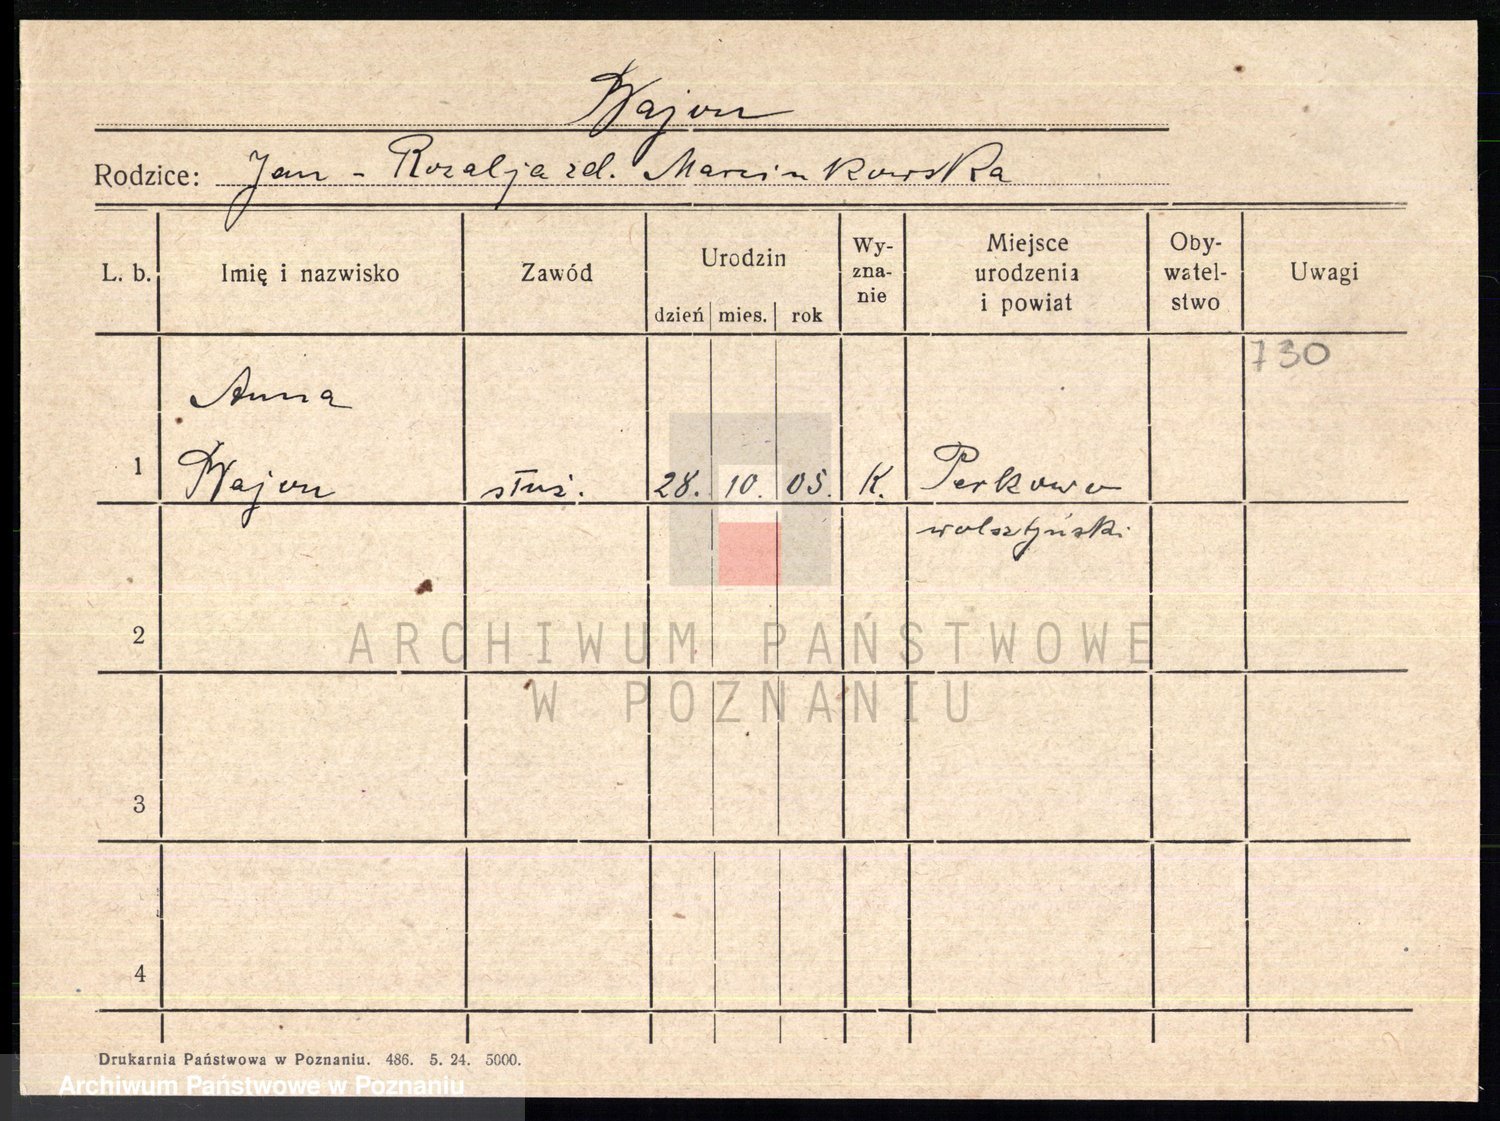 Wajon
Rodzice: Jan - Rozalja zd. Marcinkowska
L. b. Imię i nazwisko Zawód Urodzin dzień mies. rok Wy-zna-nie Miejsce urodzenia i powiat Oby-watel-stwo Uwagi
730
Anna
1 Wajon służ. 28. 10. 05. K. Perkowo
wolsztyński
2
3
4
ARCHIWUM PAŃSTWOWE
W POZNANIU
Drukarnia Państwowa w Poznaniu. 486. 5. 24. 5000.
Archiwum Państwowe w Poznaniu